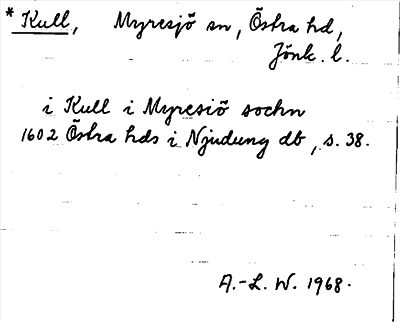 * Kull, Myresjö sn, Östra hd,
Jönk. l.
i Kull i Myresiö sochn
1602 Östra hds i Njudung db, s. 38.
A.-L. W. 1968.